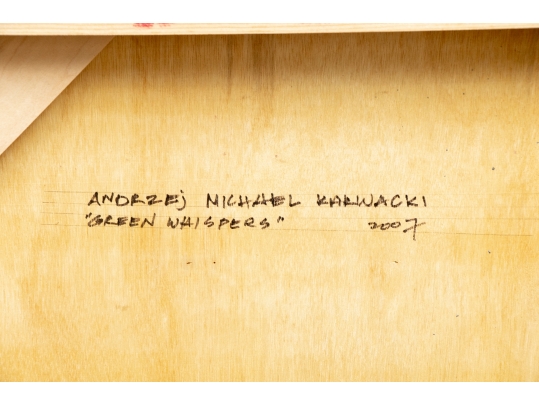 ANDRZEj MICHAEL KARWACKI
"GREEN WHISPERS" 2007